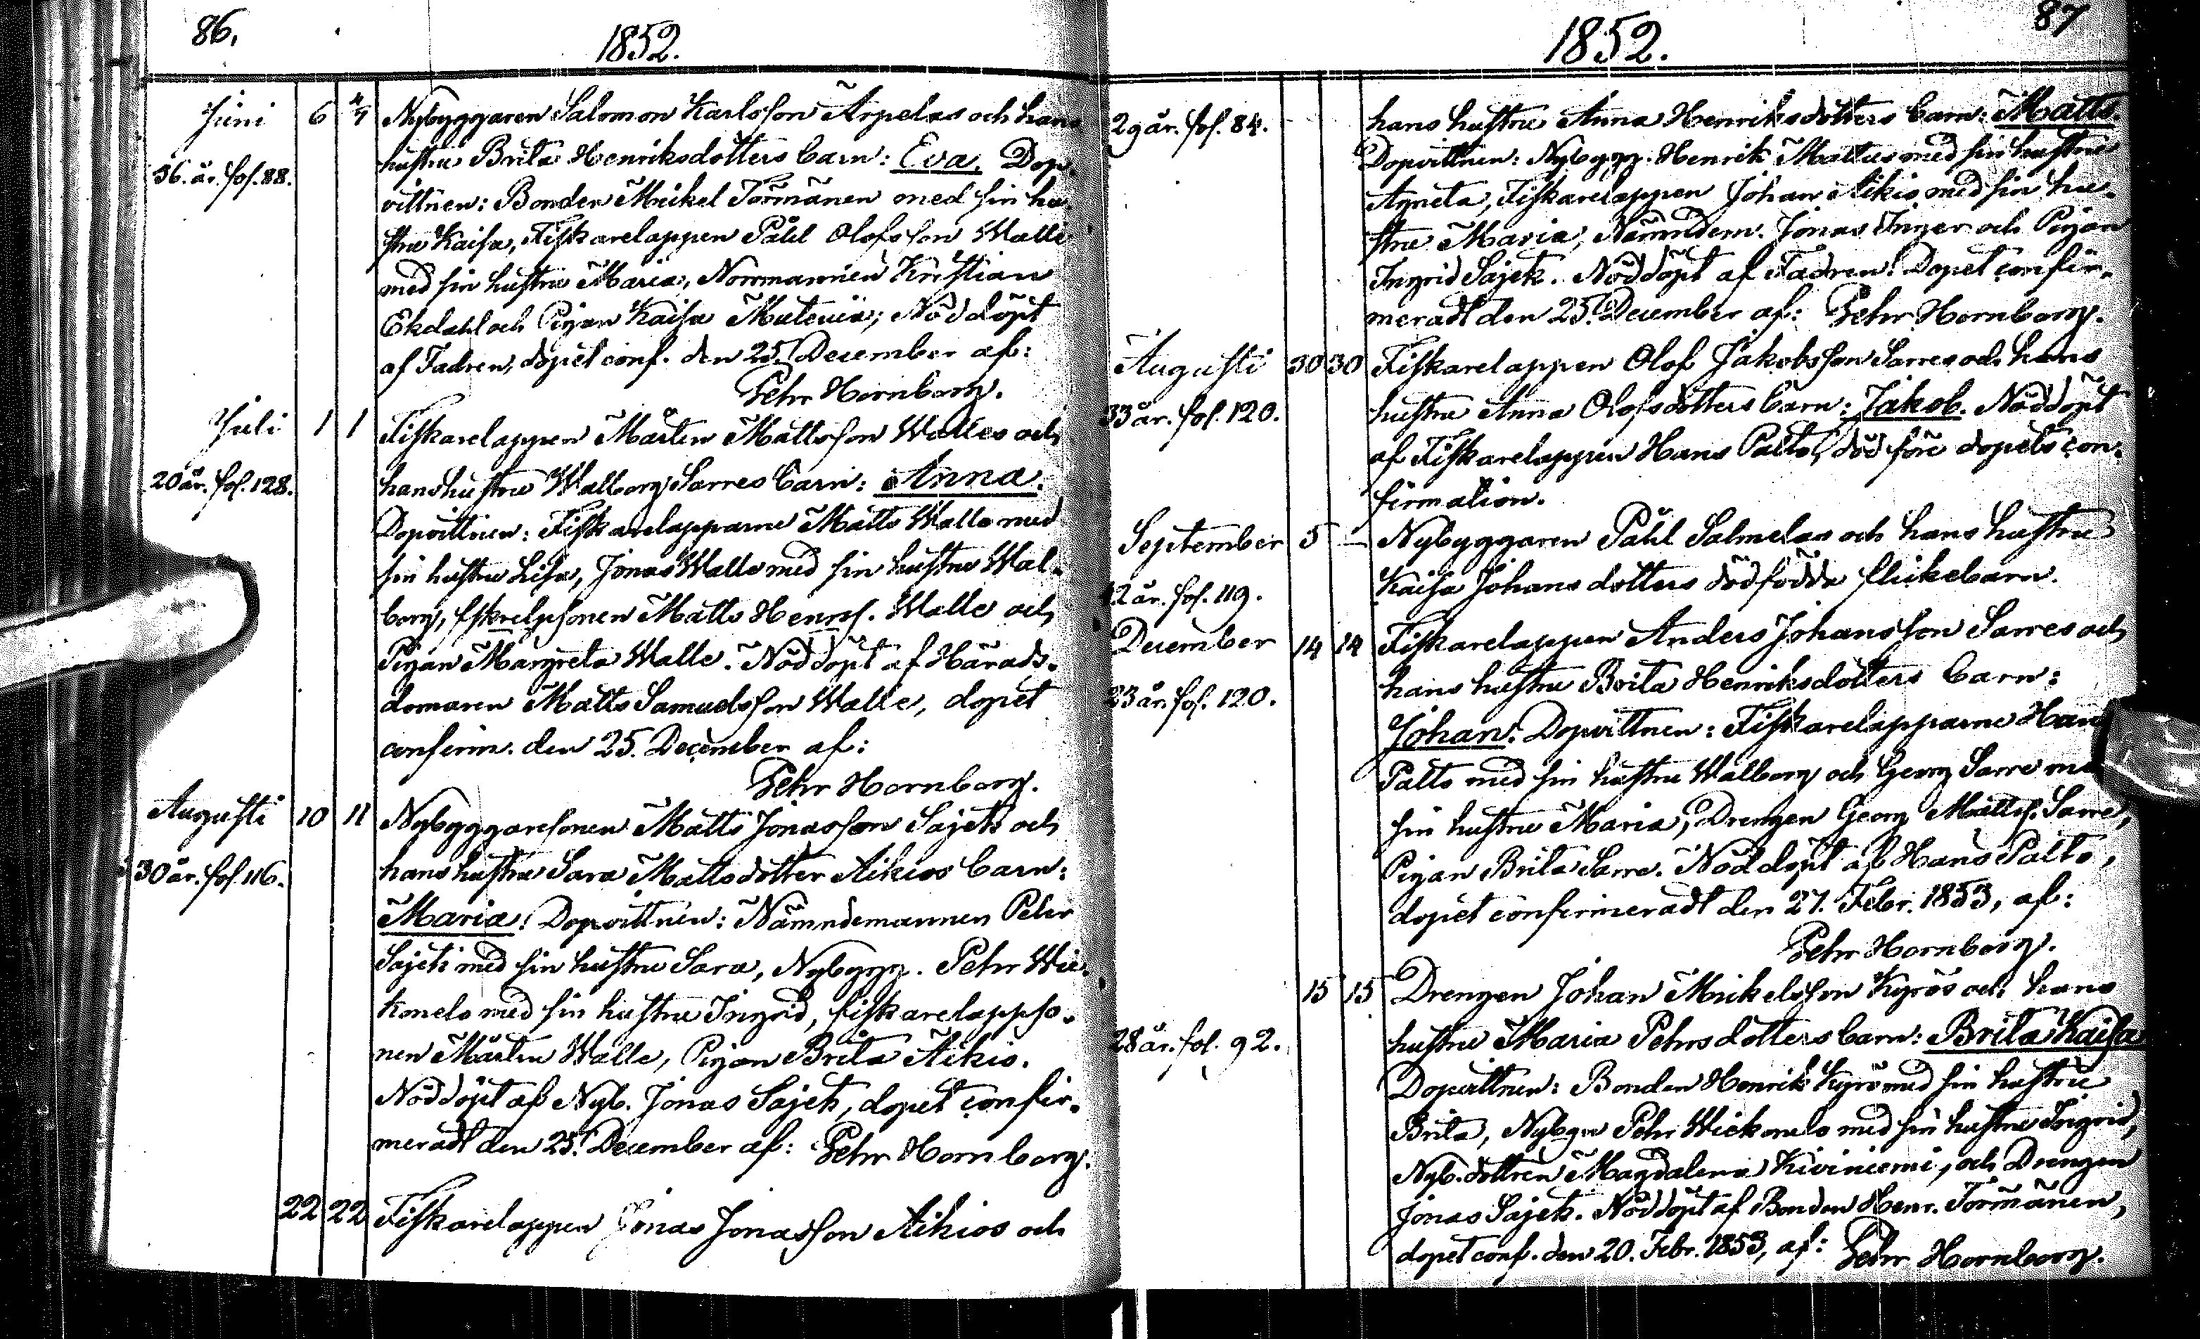 86.
1852.
Juni 6 4/7 Nybyggaren Salomon Karlsson Arpelas och hans
36. år. fol. 88. hustru Brita Henriksdotters barn: Eva. Dop-
vittnen: Bonden Mickel Törmänen med sin hu-
stru Kaisa, Fiskarelappen Påhl Olofsson Walle
med sin hustru Maria, Norrmannen Kristian
Ekdahl och Pigan Kaisa Mutenia; Nöddöpt
af Fadren, dopet conf. den 25. December af:
Pehr Hornborg.
Juli 1 1 Fiskarelappen Mårten Mattsson Walles och
20 år. fol. 128. hans hustru Walborg Sarres barn: Anna.
Dopvittnen: Fiskarelapparne Matts Walle med
sin hustru Lisa, Jonas Walle med sin hustru Wal-
borg, fskrelpsonen Matts Henrs. Walle och
Pigan Margreta Walle. Nöddöpt af Härads-
domaren Matts Samuelsson Walle, dopet
confirm. den 25. December af:
Pehr Hornborg.
Augusti 10 11 Nybyggaresonen Matts Jonasson Sajets och
30 år. fol. 116. hans hustru Sara Mattsdotter Aikios barn:
Maria. Dopvittnen: Nämndemannen Pehr
Sajets med sin hustru Sara, Nybygg. Pehr Wie-
konels med sin hustru Ingrid, fiskarelappso-
nen Mårten Walle, Pigan Brita Aikio.
Nöddöpt af Nyb. Jonas Sajets, dopet confir-
meradt den 25. December af: Pehr Hornborg.
22 22 Fiskarelappen Jonas Jonasson Aikios och
87
1852.
29 år. fol. 84. hans hustru Anna Henriksdotters barn: Matts.
Dopvittnen: Nybygg. Henrik Mattus med sin hustru
Agneta, Fiskarelappen Johan Aikio med sin hu-
stru Maria, Nämndem. Jonas Inger och Pigan
Ingrid Sajek. Nöddöpt af Fadren. Dopet confir-
meradt den 25. December af: Pehr Hornborg.
Augusti 30 30 Fiskarelappen Olof Jakobsson Sarres och hans
33 år. fol. 120. hustru Anna Olofsdotters barn: Jakob. Nöddöpt
af Fiskarelappen Hans Palto, död före dopets con-
firmation.
September 5 — Nybyggaren Påhl Salmelas och hans hustru
42 år. fol. 119. Kaisa Johansdotters dödfödda flickebarn.
December 14 14 Fiskarelappen Anders Johansson Sarres och
23 år. fol. 120. hans hustru Brita Henriksdotters barn:
Johan. Dopvittnen: Fiskarelapparne Hans
Palto med sin hustru Walborg och Georg Sarre med
sin hustru Maria, Drengen Georg Mattss. Sarre,
Pigan Brita Sarre. Nöddöpt af Hans Palto,
dopet confirmeradt den 27. Febr. 1853, af:
Pehr Hornborg.
15 15 Drengen Johan Mickelsson Kyrös och hans
28 år. fol. 92. hustru Maria Pehrsdotters barn: Brita Kaisa
Dopvittnen: Bonden Henrik Kyrö med sin hustru
Brita, Nybygn Pehr Wiekonels med sin hustru Ingrid,
Nyb.dottren Magdalena Kiviniemi, och Drengen
Jonas Sajek. Nöddöpt af Bonden Henr. Törmänen,
dopet conf. den 20. Febr. 1853, af: Pehr Hornborg.